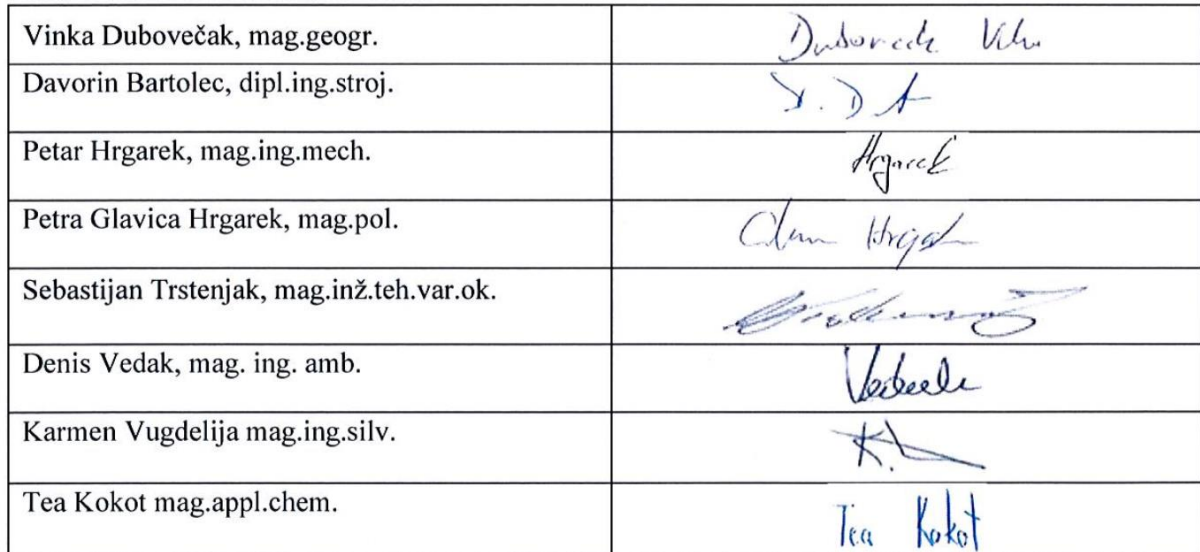 Vinka Dubovečak, mag.geogr.
Davorin Bartolec, dipl.ing.stroj.
Petar Hrgarek, mag.ing.mech. Hrgarek
Petra Glavica Hrgarek, mag.pol.
Sebastijan Trstenjak, mag.inž.teh.var.ok.
Denis Vedak, mag. ing. amb.
Karmen Vugdelija mag.ing.silv.
Tea Kokot mag.appl.chem. Tea Kokot